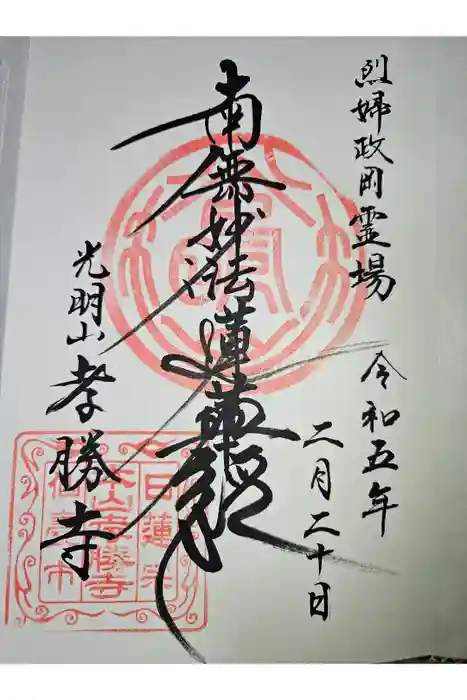 烈婦政岡霊場
令和五年
二月二十日
南無妙法蓮華経
光明山
孝勝寺
日蓮宗
本山孝勝寺